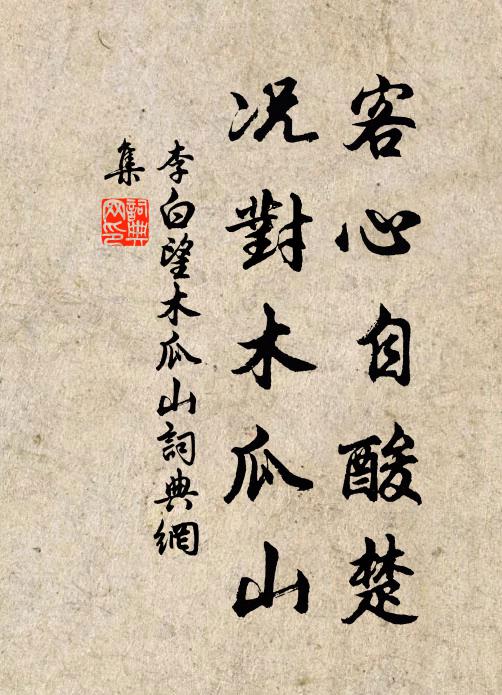 客心自酸楚
况對木瓜山
李白望木瓜山詞典網
集
詞典網印